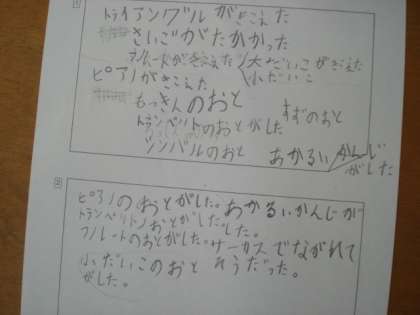 トライアングルがきこえた
さいごがたかかった
大だいこがきこえた
小だいこ
ピアノがきこえた
もっきんのおと
すずのおと
トランペットのおとがした
シンバルのおと
あかるいかんじ
がした
ピアノのおとがした。あかるいかんじが
した。
フルートのおとがした。サーカスでながれて
小だいこのおと そうだった。
がした。